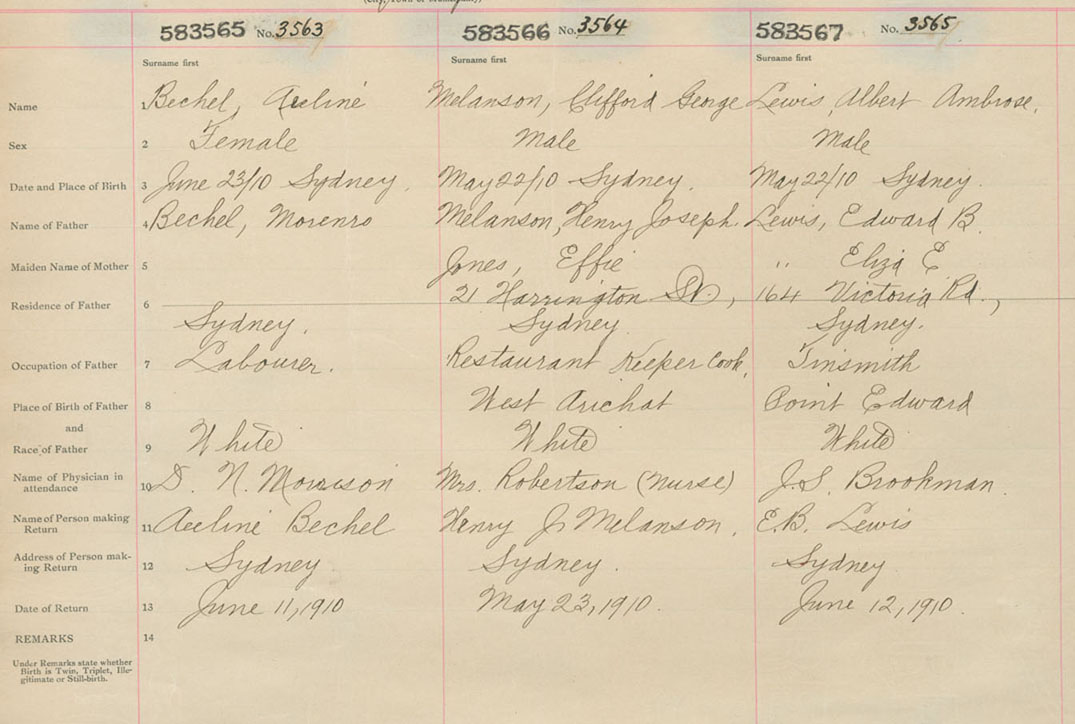 583565 No. 3563 583566 No. 3564 583567 No. 3565
Surname first Surname first Surname first
Name 1 Bechel, Melanson, Clifford George Lewis, Albert Ambrose.
Sex 2 Female Male Male
Date and Place of Birth 3 June 23/10 Sydney. May 22/10 Sydney. May 22/10 Sydney.
Name of Father 4 Bechel, Melanson, Henry Joseph. Lewis, Edward B.
Maiden Name of Mother 5 Jones, Effie " Eliza E.
21 Harrington St., 164 Victoria Rd.,
Residence of Father 6 Sydney. Sydney. Sydney.
Occupation of Father 7 Labourer. Restaurant Keeper Cook. Tinsmith
Place of Birth of Father 8 West Arichat Point Edward
and
Race of Father 9 White White White
Name of Physician in
attendance 10 D. N. Morrison Mrs. Robertson (Nurse) J.S. Brookman.
Name of Person making
Return 11 Bechel Henry J. Melanson. E.B. Lewis
Address of Person mak-
ing Return 12 Sydney Sydney. Sydney
Date of Return 13 June 11, 1910 May 23, 1910. June 12, 1910.
REMARKS 14
Under Remarks state whether
Birth is Twin, Triplet, Ille-
gitimate or Still-birth.